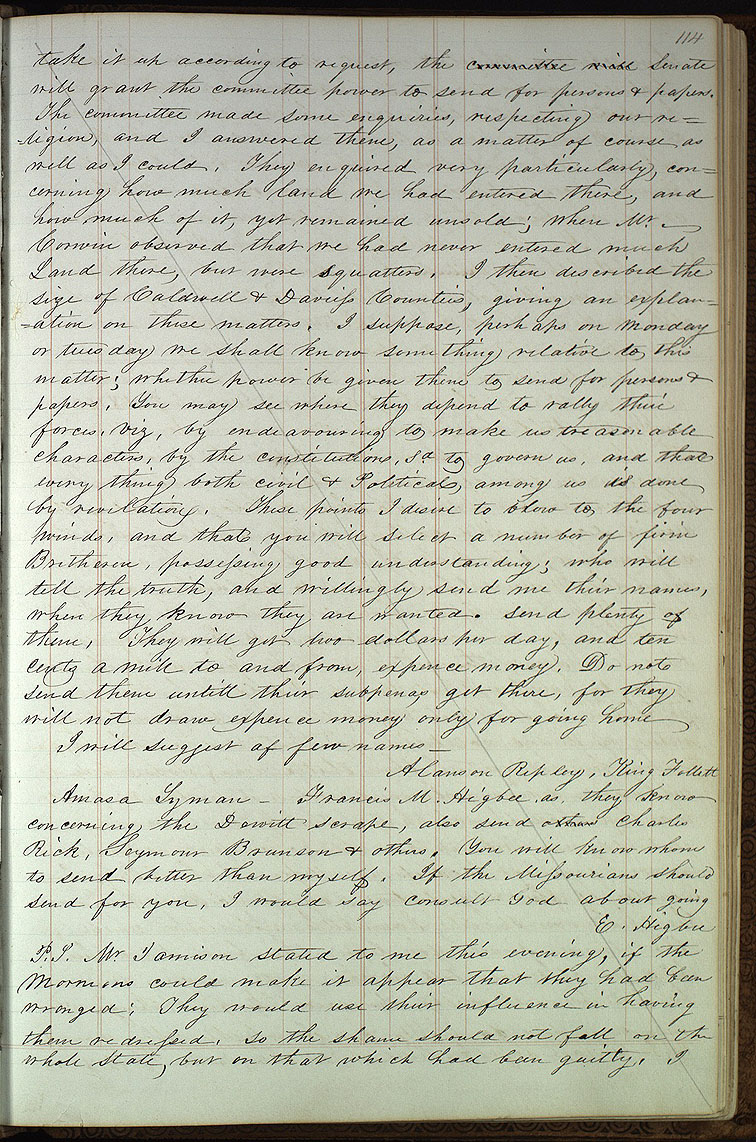 114
take it up according to request, the committee will Senate
will grant the committee power to send for persons & papers.
The committee made some enquiries, respecting our re=
ligion, and I answered them, as a matter of course, as
well as I could. They enquired very particularly, con=
cerning how much land we had entered there, and
how much of it, yet remained unsold; when Mr.
Corwin observed that we had never entered much
Land there, but were squatters. I then described the
size of Caldwell & Daviess Counties, giving an explan=
=ation on these matters. I suppose, perhaps on Monday
or tuesday we shall know something relative to this
matter; whether power be given them to send for persons &
papers. You may see where they depend to rally their
forces, viz, by endeavouring to make us treasonable
characters, by the constitutions, sd. to govern us, and that
every thing both civil & Political, among us is done
by revilation. These points I desire to blow to the four
winds, and that you will select a number of firm
Bretheren, possessing good understanding; who will
tell the truth, and willingly send me their names,
when they know they are wanted. Send plenty of
them. They will get two dollars per day, and ten
cents a mile to and from, expence money. Do not
send them untill their subpenas get there, for they
will not draw expence money only for going home
I will suggest af few names—
Alanson Ripley, King Follett
Amasa Lyman— Francis M. Higbee as, they know
concerning the Dewitt scrape, also send Charles
Rick, Seymour Brunson & others. You will know whom
to send better than myself. If the Missourians should
send for you, I would say consult God about going
E. Higbee
P.S. Mr Jamison stated to me this evening, if the
Mormons could make it appear that they had been
wronged; They would use their influence in having
them redressed, so the shame should not fall on the
whole state, but on that which had been guilty. I